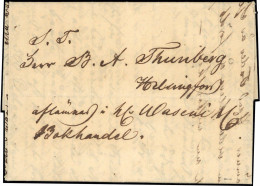 S. T.
Herr B. A. Thunberg
Helsingfors
aflämnas i H Wasenii &C
Bokhandel.